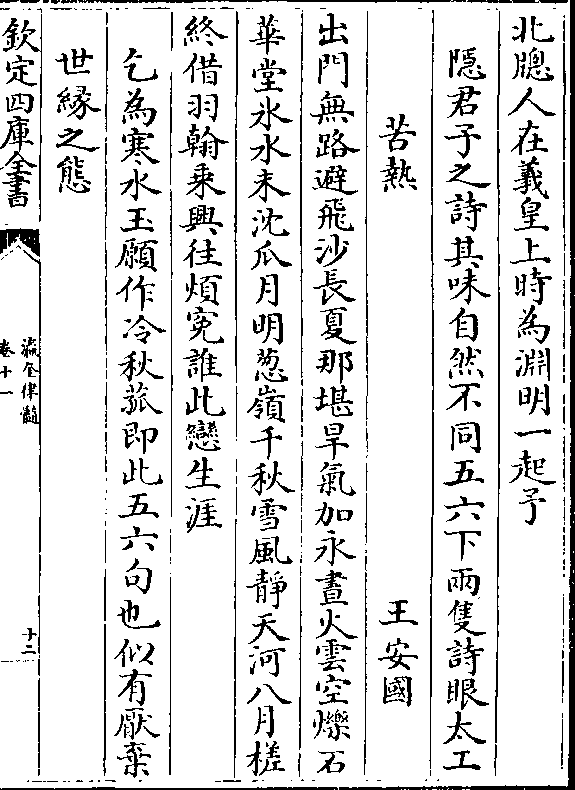 北牕人在羲皇上時為淵明一起予
隱君子之詩其味自然不同五六下兩隻詩眼太工
苦熱　王安國
出門無路避飛沙長夏那堪旱氣加永晝火雲空爍石
華堂氷水未沈瓜月明葱嶺千秋雪風靜天河八月槎
終借羽翰乘興往煩寃誰此戀生涯
乞為寒水玉願作冷秋菰即此五六句也似有厭棄
世緣之態
欽定四庫全書
瀛奎律髓
卷十一
十二